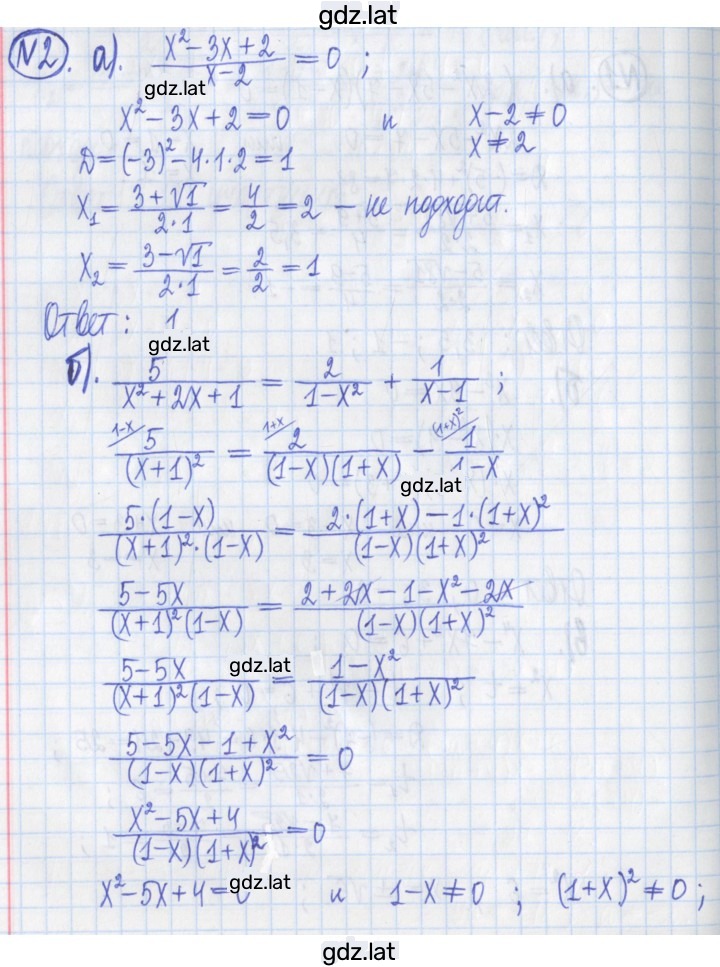 gdz.lat
N2. а). (x² - 3x + 2)/(x - 2) = 0 ;
gdz.lat
x² - 3x + 2 = 0 и x - 2 ≠ 0
x ≠ 2
D = (-3)² - 4·1·2 = 1
x₁ = (3 + √1)/(2·1) = 4/2 = 2 – не подходит.
x₂ = (3 - √1)/(2·1) = 2/2 = 1
Ответ: 1
gdz.lat
б). 5/(x² + 2x + 1) = 2/(1 - x²) + 1/(x - 1) ;
1-x/ 5/(x+1)² = 1+x/ 2/((1-x)(1+x)) - (1+x)²/ 1/(1-x)
gdz.lat
5·(1-x)/((x+1)²·(1-x)) = (2·(1+x) - 1·(1+x)²)/((1-x)(1+x)²)
(5 - 5x)/((x+1)²(1-x)) = (2 + 2x - 1 - x² - 2x)/((1-x)(1+x)²)
gdz.lat
(5 - 5x)/((x+1)²(1-x)) = (1 - x²)/((1-x)(1+x)²)
(5 - 5x - 1 + x²)/((1-x)(1+x)²) = 0
(x² - 5x + 4)/((1-x)(1+x)²) = 0
x² - 5x + 4 = 0 и 1 - x ≠ 0 ; (1+x)² ≠ 0 ;
gdz.lat
gdz.lat